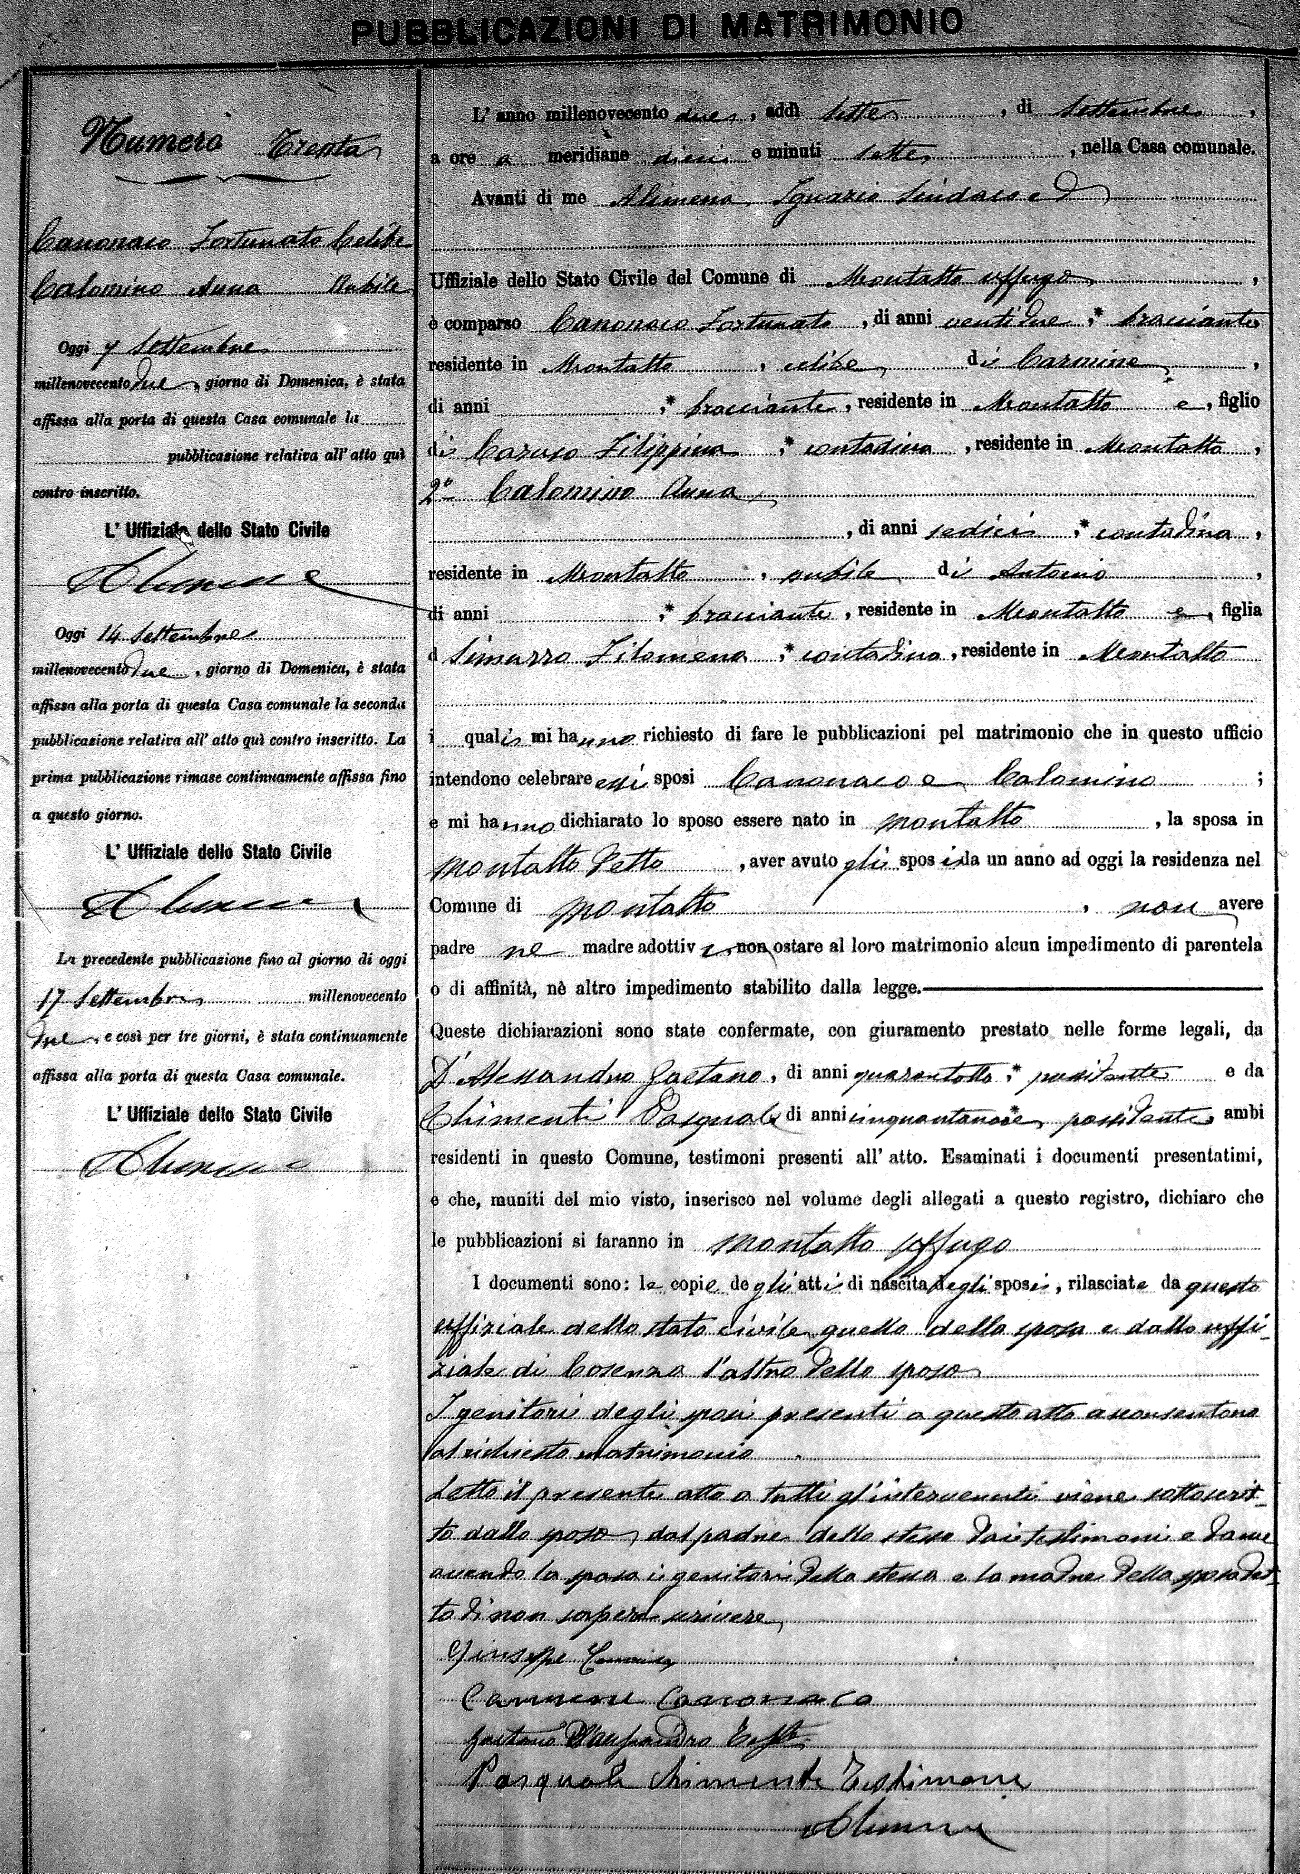 PUBBLICAZIONI DI MATRIMONIO
Numero Trenta
Canonaco Fortunato Celibe
Calomino Anna Nubile
Oggi 7 Settembre
millenovecento due, giorno di Domenica, è stata
affissa alla porta di questa Casa comunale la
pubblicazione relativa all' atto quì
contro inscritto.
L' Uffiziale dello Stato Civile
Alimena
Oggi 14 Settembre
millenovecento due, giorno di Domenica, è stata
affissa alla porta di questa Casa comunale la seconda
pubblicazione relativa all' atto quì contro inscritto. La
prima pubblicazione rimase continuamente affissa fino
a questo giorno.
L' Uffiziale dello Stato Civile
Alimena
La precedente pubblicazione fino al giorno di oggi
17 Settembre millenovecento
due, e così per tre giorni, è stata continuamente
affissa alla porta di questa Casa comunale.
L' Uffiziale dello Stato Civile
Alimena
L' anno millenovecento due, addì sette, di Settembre,
a ore a meridiane dieci e minuti sette, nella Casa comunale.
Avanti di me Alimena Ignazio Sindaco ed
Uffiziale dello Stato Civile del Comune di Montalto Uffugo,
è comparso Canonaco Fortunato, di anni ventidue, * bracciante
residente in Montalto, celibe di Carmine,
di anni , * bracciante, residente in Montalto e, figlio
di Caruso Filippina, * contadina, residente in Montalto,
2° Calomino Anna
, di anni sedici, * contadina,
residente in Montalto, nubile di Antonio,
di anni , * bracciante, residente in Montalto e, figlia
d Simarro Filomena, * contadina, residente in Montalto
i quali mi hanno richiesto di fare le pubblicazioni pel matrimonio che in questo ufficio
intendono celebrare essi sposi Canonaco e Calomino ;
e mi hanno dichiarato lo sposo essere nato in Montalto, la sposa in
Montalto detto, aver avuto gli sposi da un anno ad oggi la residenza nel
Comune di Montalto, non avere
padre ne madre adottivi, non ostare al loro matrimonio alcun impedimento di parentela
o di affinità, nè altro impedimento stabilito dalla legge.
Queste dichiarazioni sono state confermate, con giuramento prestato nelle forme legali, da
D'Alessandro Gaetano, di anni quarantotto, * possidente e da
Chimenti Pasquale di anni cinquantanove, * possidente, ambi
residenti in questo Comune, testimoni presenti all' atto. Esaminati i documenti presentatimi,
e che, muniti del mio visto, inserisco nel volume degli allegati a questo registro, dichiaro che
le pubblicazioni si faranno in Montalto Uffugo
I documenti sono: le copie degli atti di nascita degli sposi, rilasciate da questo
uffiziale dello stato civile quello della sposa e dallo uffi-
ziale di Cosenza l'altro dello sposo
I genitori degli sposi presenti a questo atto acconsentono
al richiesto matrimonio.
Letto il presente atto a tutti gl'intervenuti viene sottoscrit-
to dallo sposo, dal padre dello stesso dai testimoni e da me
avendo la sposa i genitori della stessa e la madre dello sposo det-
to di non sapere scrivere
Carmine Canonaco
Gaetano D'Alessandro Test.
Pasquale Chimenti Testimone
Alimena